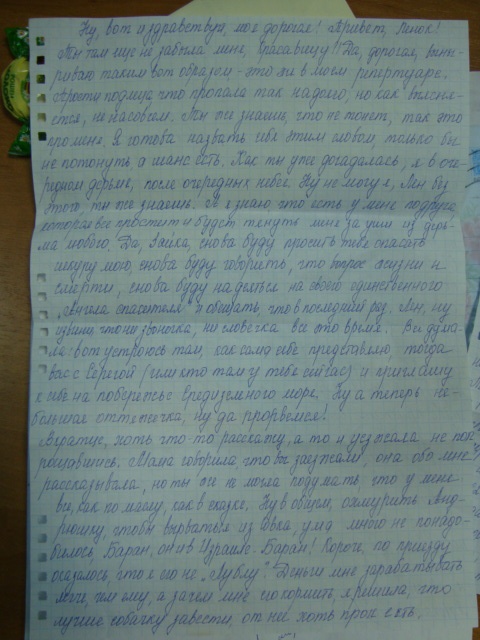 Ну, вот и здравствуй, моя дорогая! Привет, Ленок!
Ты там еще не забыла меня, красавицу!! Да, дорогая, выны-
риваю таким вот образом – это же в моем репертуаре.
Прости подлую что пропала так надолго, но как выясня-
ется, не насовсем. Ты же знаешь, что не тонет, так это
про меня. Я готова назвать себя этим словом, только бы
не потонуть, а шанс есть. Как ты уже догадалась, я в оче-
редном дерьме, после очередных небес. Ну не могу я, Лен без
этого, ты же знаешь. Но я знаю, что есть у меня подруга,
которая все простит и будет тянуть меня за уши из дерь-
ма любого. Да, Зайка, снова буду просить тебя спасать
шкуру мою, снова буду говорить, что вопрос жизни и
смерти, снова буду надеяться на своего единственного
"Ангела спасителя" и обещать, что в последний раз. Лен, ну
извини, что ни звоночка, ни словечка все это время. Все дума-
ла: вот устроюсь там, как сама себе представляю, тогда
вас с Серегой (или кто там у тебя сейчас) и приглашу
к себе на побережье Средиземного моря. Ну а теперь не-
большая оттяжечка, ну да прорвемся!
Вкратце, хоть что-то расскажу, а то и уезжала не поп
рощавшись. Мама говорила что вы заезжали, она обо мне
рассказывала, но ты же не могла подумать, что у меня
все, как по маслу, как в сказке. Ну в общем, охмурить Анд-
рюшку, чтобы вырваться из совка, ума много не понадо-
билось, Баран, он и в Израиле - Баран! Короче, по приезду
оказалось, что я его не "Лублу". Деньги мне зарабатывать
легче, чем ему, а зачем мне его кормить, я решила, что
лучше собачку завести, от нее хоть прок есть.